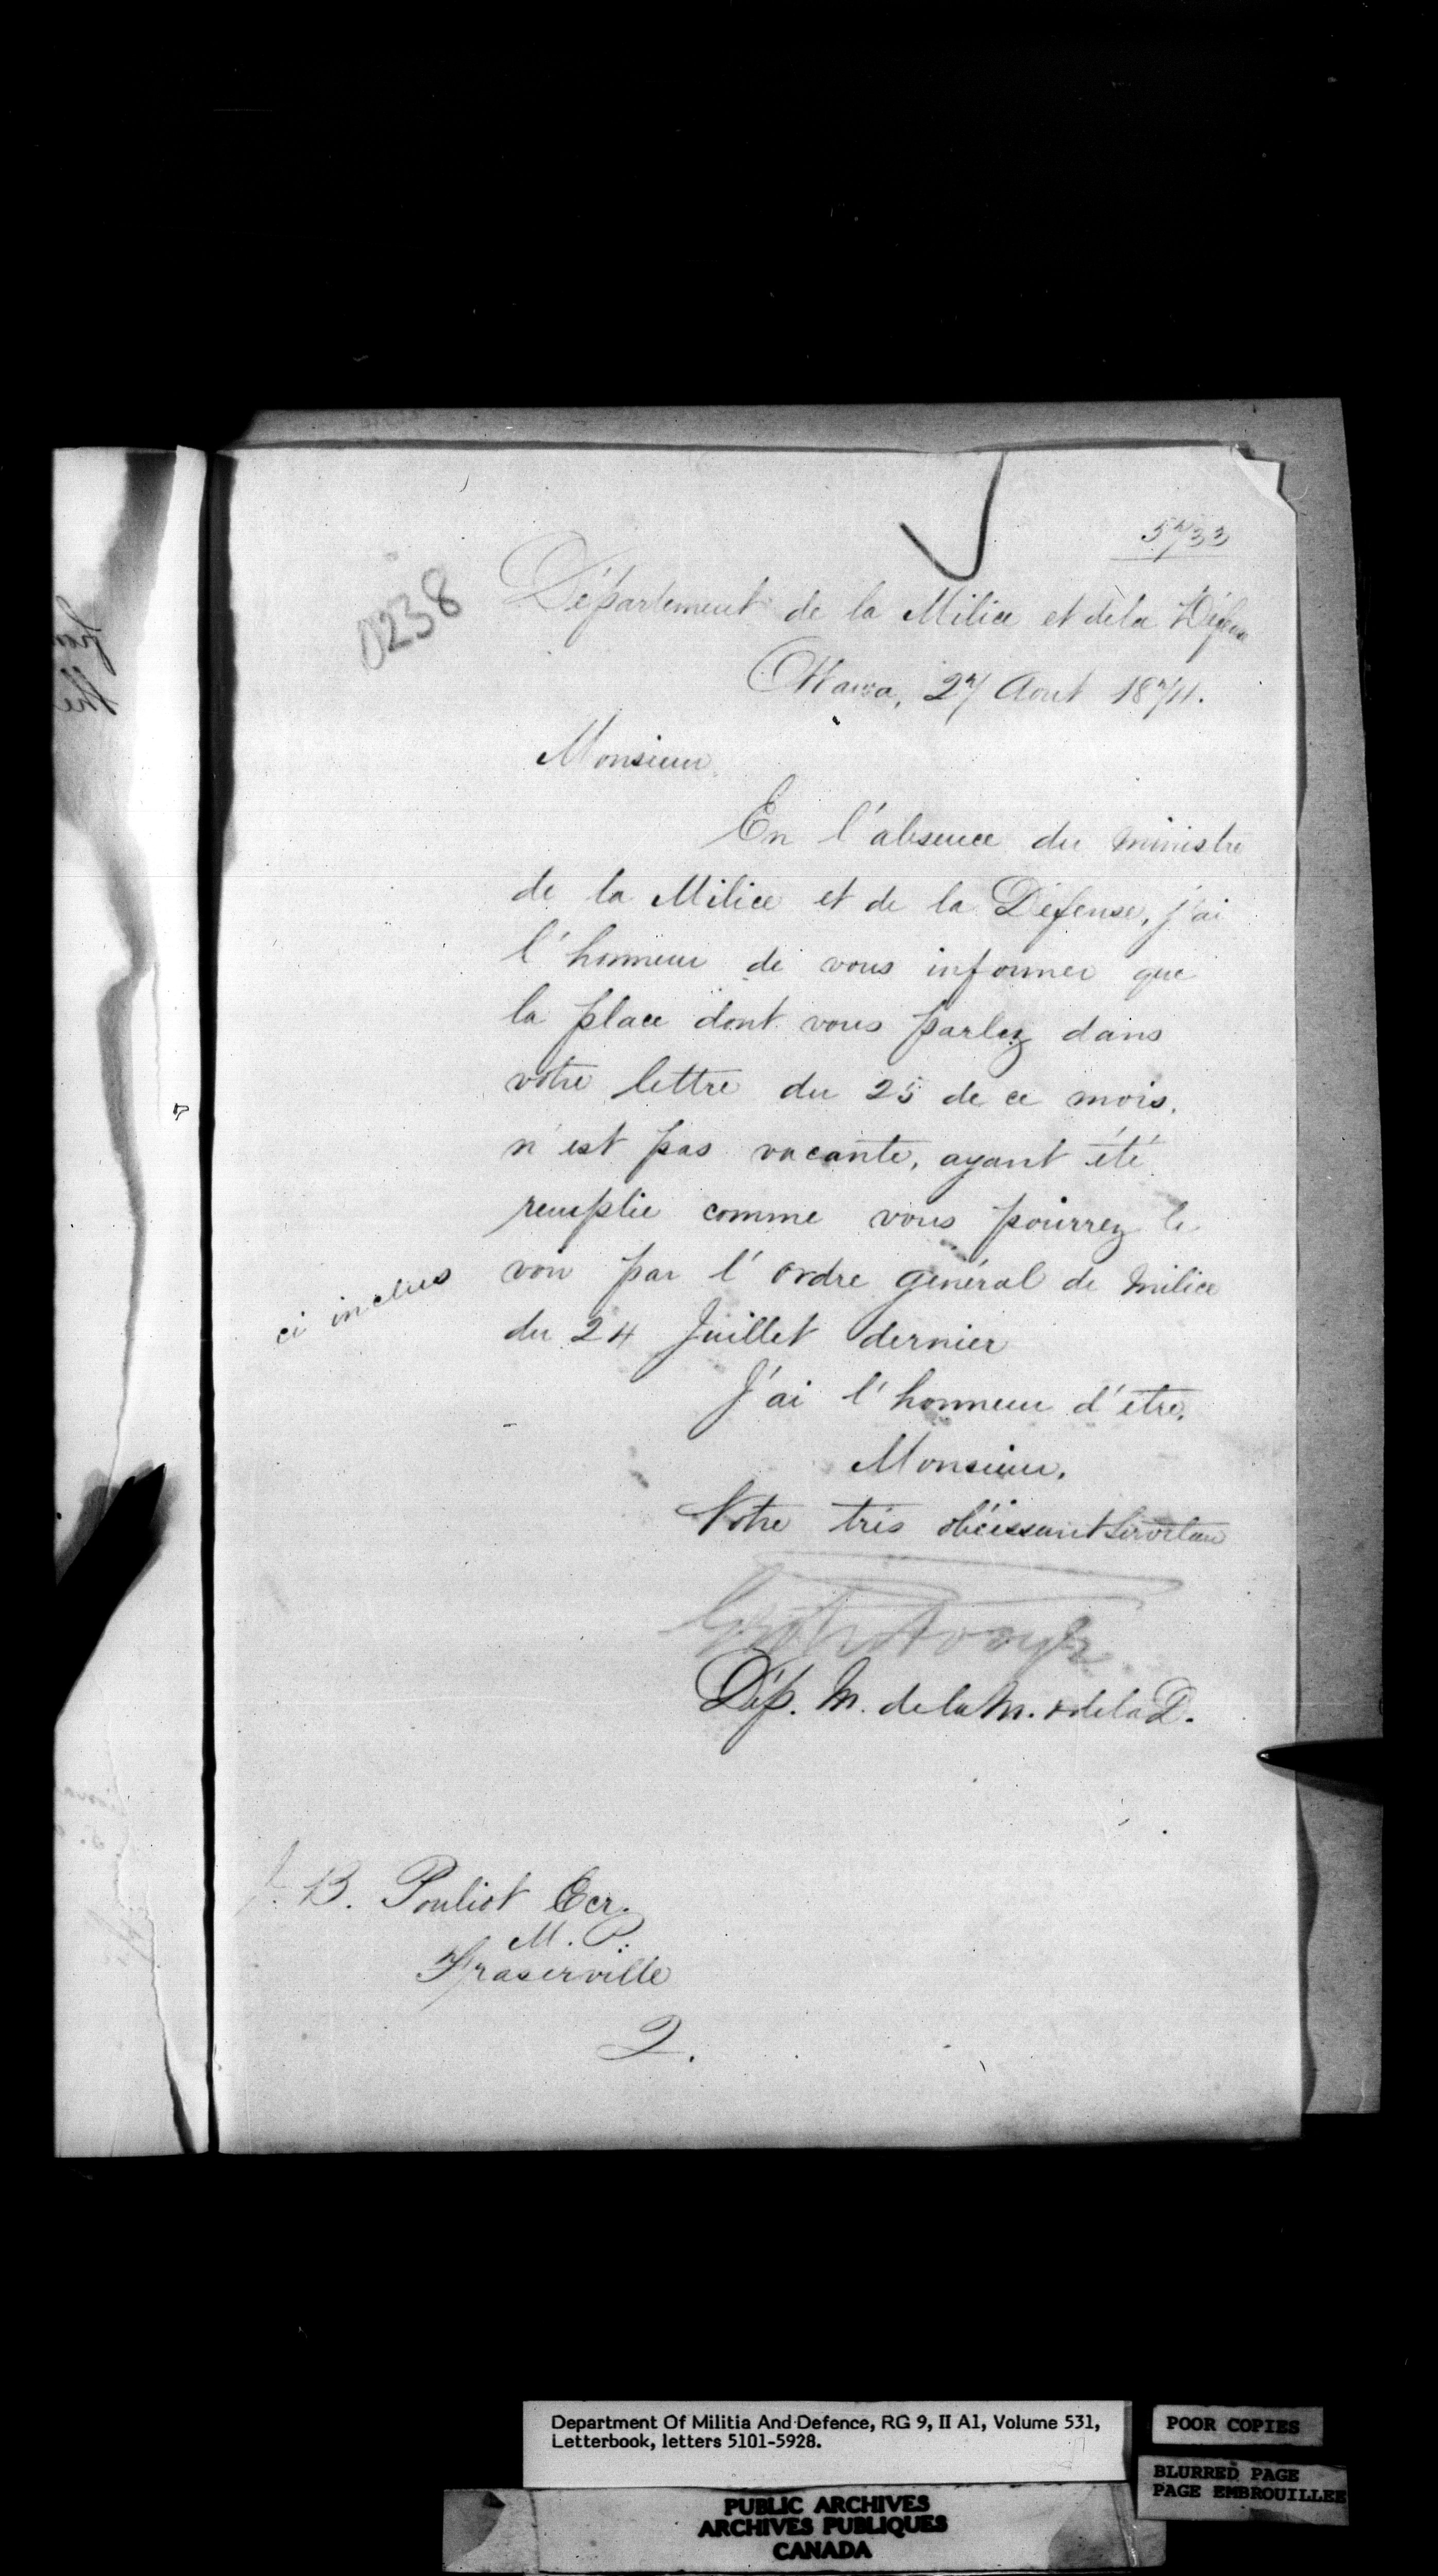 5733
0238
Département de la Milice et de la Défen
Ottawa, 27 Aout 1874.
Monsieur,
En l'absence du ministre
de la Milice et de la Défense, j'ai
l'honneur de vous informer que
la place dont vous parlez dans
votre lettre du 25 de ce mois,
n'est pas vacante, ayant été
remplie comme vous pourrez le
ci inclus
voir par l'ordre général de milice
du 24 Juillet dernier
J'ai l'honneur d'etre,
Monsieur,
Votre très obéissant Serviteur
Dép. M. de la M. & de la D.
J. B. Pouliot Ecr.
M. P.
Fraserville
Q.
Department Of Militia And Defence, RG 9, II A1, Volume 531,
Letterbook, letters 5101-5928.
POOR COPIES
BLURRED PAGE
PAGE EMBROUILLEE
PUBLIC ARCHIVES
ARCHIVES PUBLIQUES
CANADA